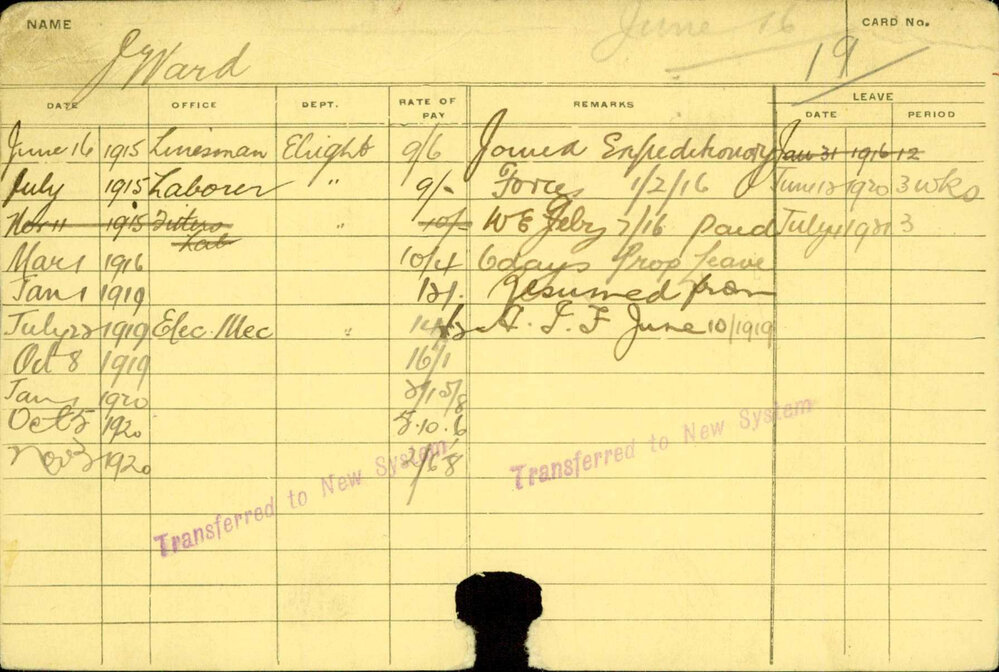 NAME June 16 CARD No.
J Ward 19
DATE OFFICE DEPT. RATE OF PAY REMARKS LEAVE
DATE PERIOD
June 16 1915 Linesman Elight 9/6 Joined Expeditionary Jan 31 1916 12
July 1915 Laborer " 9/- Forces 1/2/16 June 12 1920 3 wks
Nov 11 1915 Fitters Lab " 10/- WE Feby 7/16 Paid July 1921 3
Mar 1 1916 10/4 6 days Prop Leave
Jan 1 1919 12/- Resumed from
July 22 1919 Elec. Mec " A. I. F June 10/1919
Oct 8 1919 16/1
Jan 1 1920
Oct 5 1920
Nov 3 1920
Transferred to New System
Transferred to New System